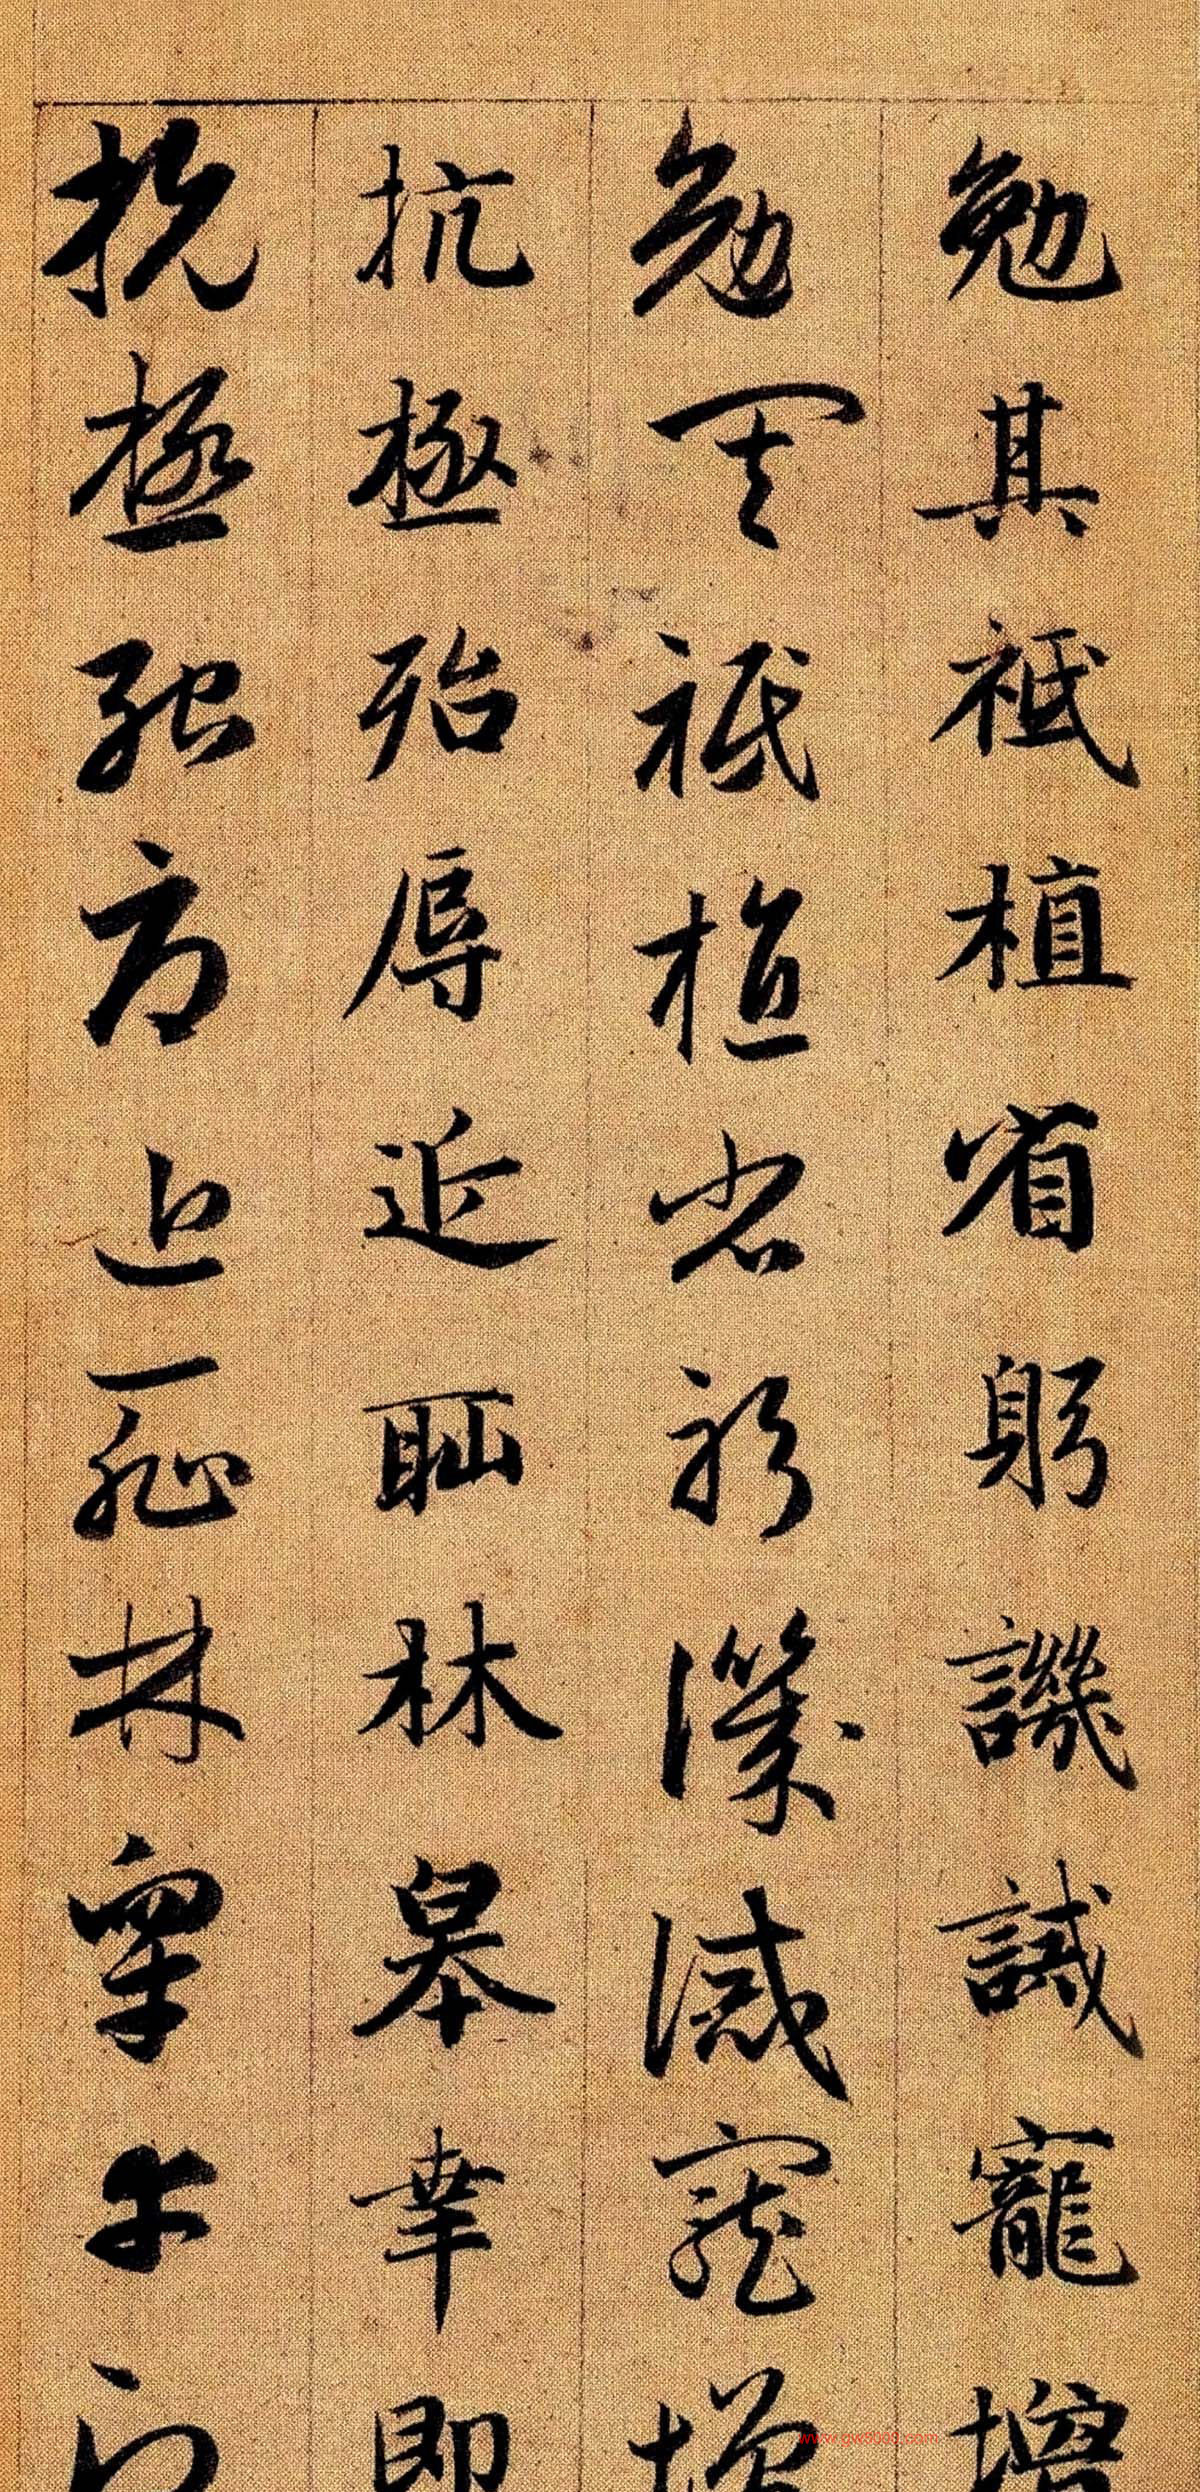 勉其祗植省躬譏誡寵增
勉其祗植省躬譏誡寵增
抗極殆辱近恥林皋幸即
抗極殆辱近恥林皋幸即
www.gw5000.com